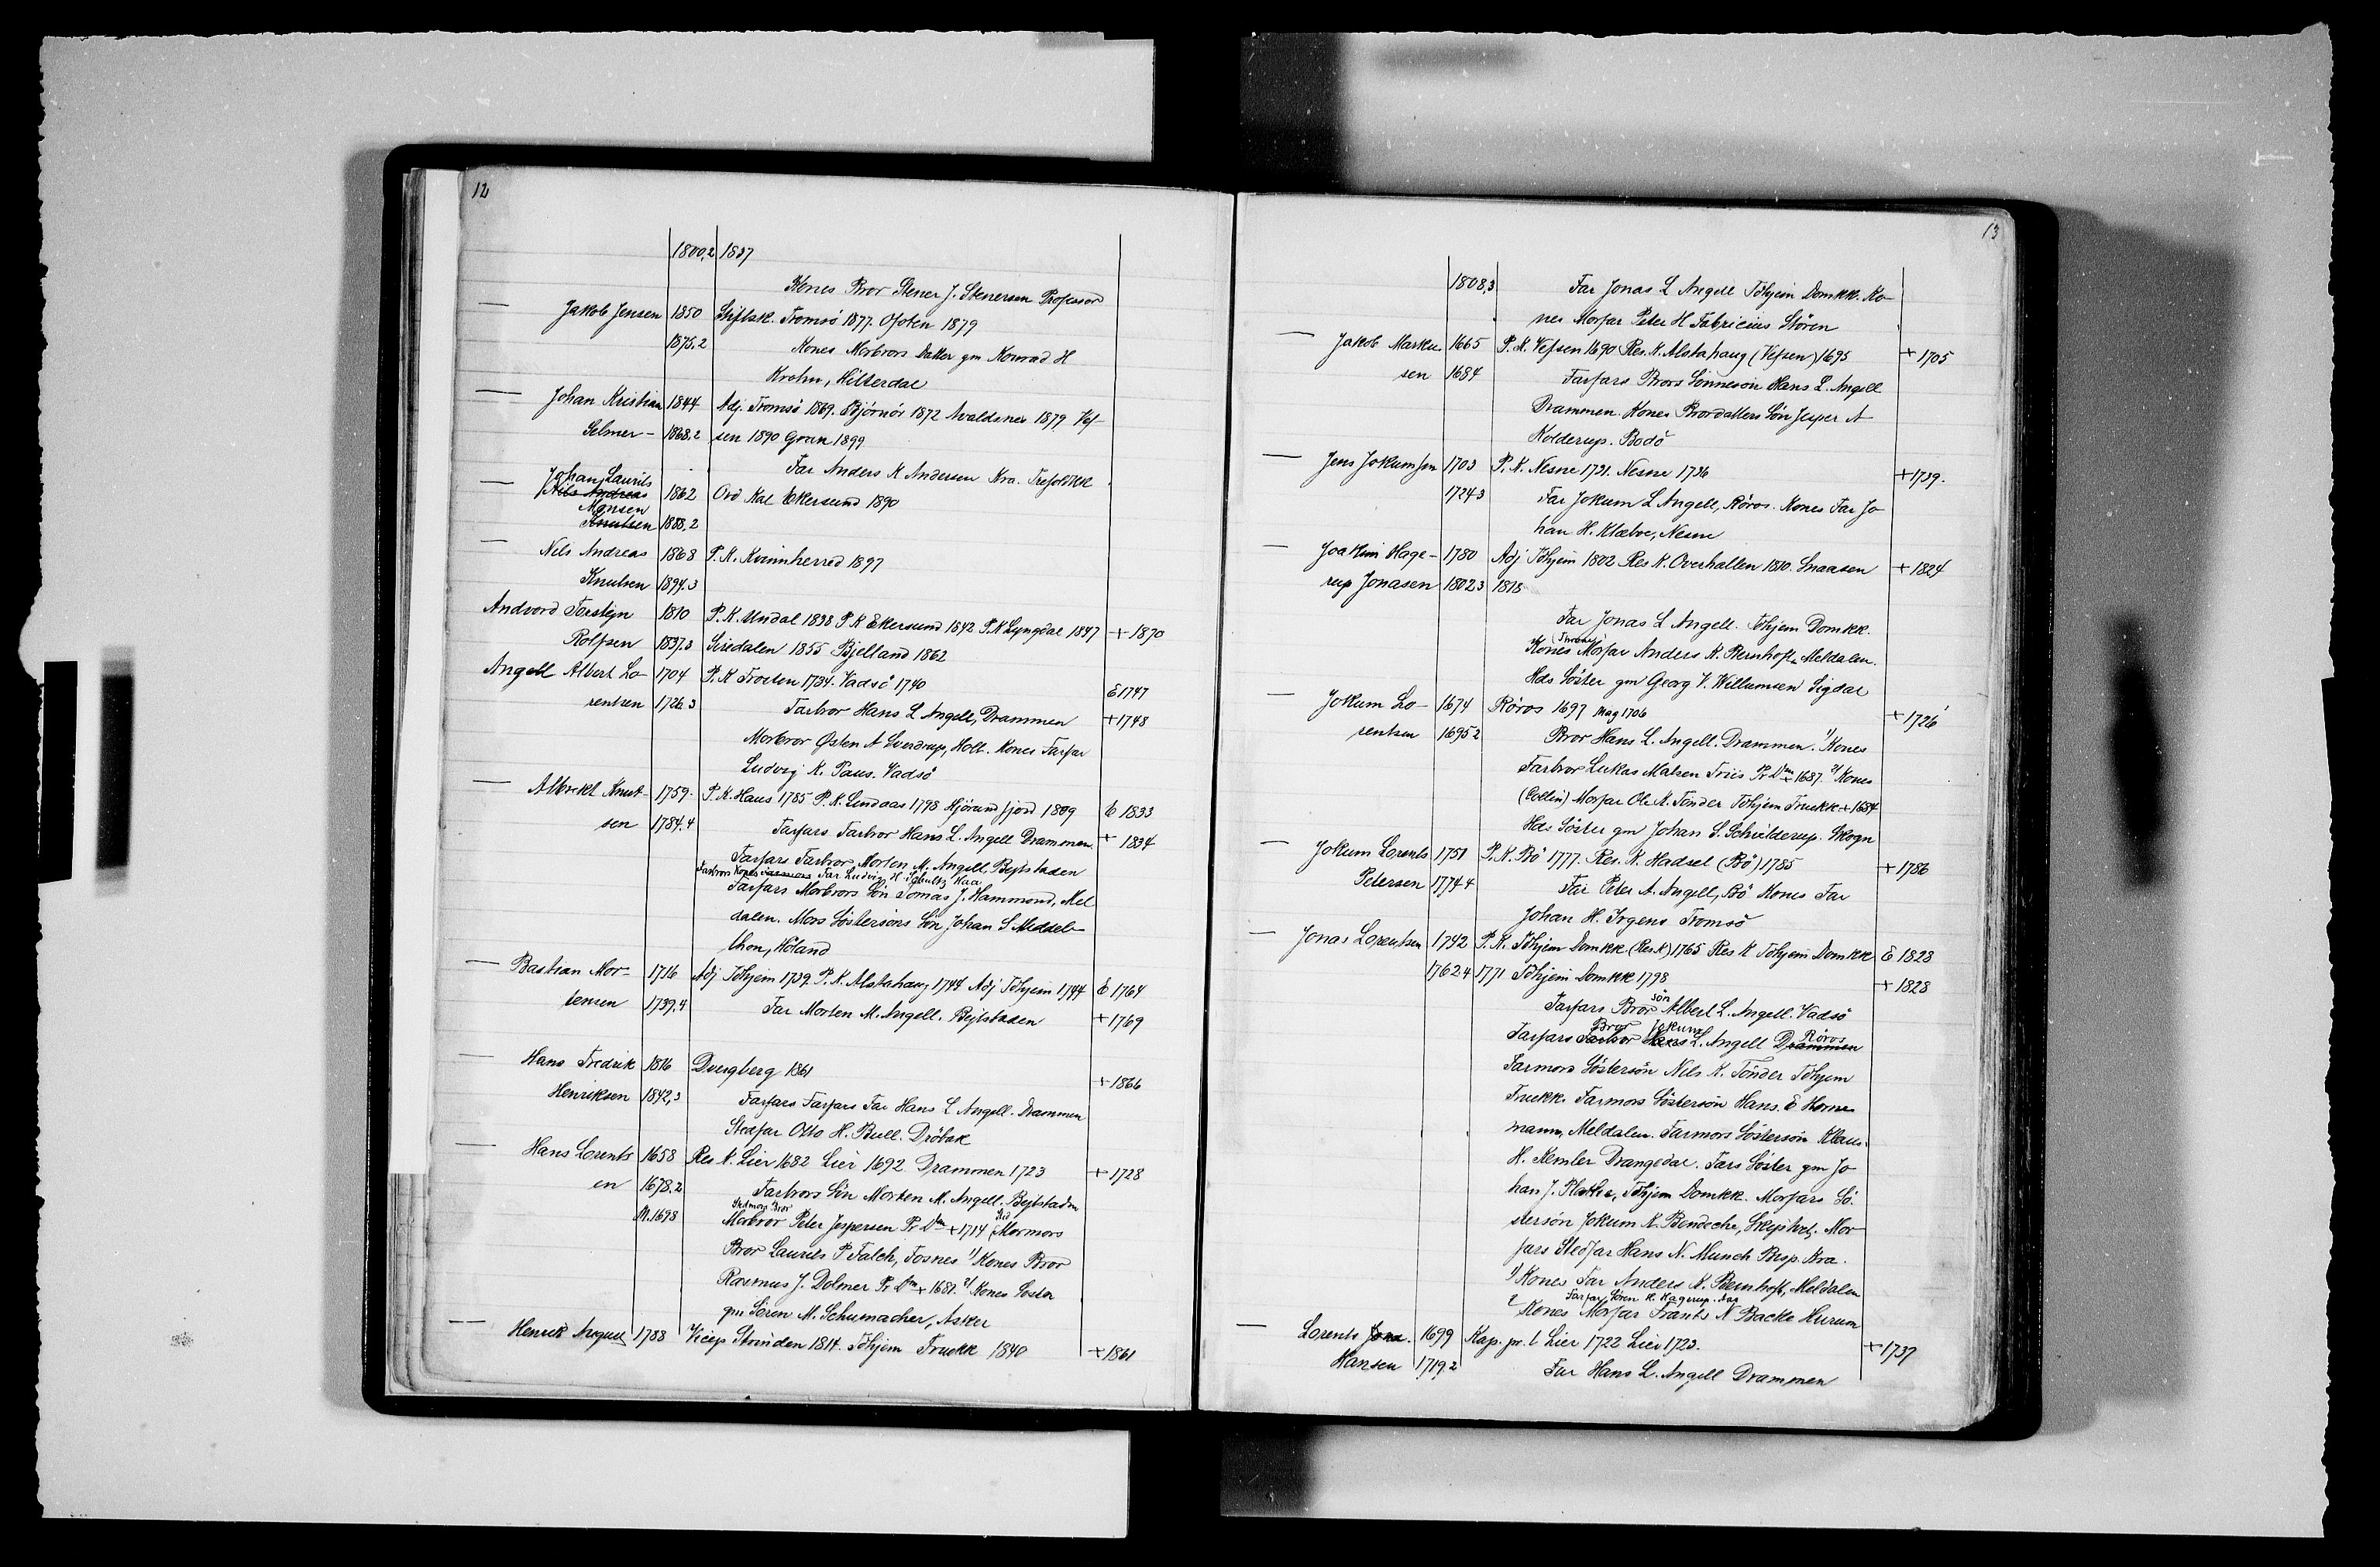 12
1800,2 1837
Kones Bror Stener J. Stenersen Professor
— Jakob Jensen 1850 Stiftsk. Tromsö 1877. Ofoten 1879
1875,2 Kones Morbrors Datter gm Konrad H
Krohn, Hitterdal
— Johan Kristian 1844 Adj. Tromsö 1869. Björnör 1872 Avaldsnes 1879 Vef-
Selmer — 1868,2 sen 1890 Gran 1899
Far Anders K Andersen Kra. Trefoldkk
Johan Laurits
— Nils Andreas 1862 Ord Kat Ekersund 1890
Monsen
Knutsen 1888,2
— Nels Andreas 1868 P. K. Kvinnherred 1897
Knutsen 1894.3
Andvord Torstejn 1810 P. K. Undal 1838 P K Ekersund 1842 P.K Lyngdal 1847 + 1870
Rolfsen 1837.3 Siredalen 1855 Bjelland 1862
Angell Albert Lo- 1704 P. K Trosten 1734. Vadsö 1740 E 1747
rentsen 1726.3 Farbror Hans L Angell, Drammen + 1748
Morbror Østen A Sverdrup, Holt. Kones Farfar
Ludvig K. Paus. Vadsö
— Albrekt Knut- 1759. P. K. Haus 1785 P. K. Lindaas 1798 Hjörundfjord 1809 E 1833
sen 1784.4 Farfars Farbror Hans L. Angell Drammen. + 1834
Farfars Farbror Morten M. Angell, Bejtstaden
Farbrors Kones Farmors Far Ludvig H Schultz Haa
Farfars Morbrors Sön Tomas J. Hammond, Mel
dalen. Mors Söstersöns Sön Johan S Meddel-
thon, Höland
— Bastian Mor- 1716 Adj Tdhjem 1739. P. K. Alstahaug 1744 Adj Tdhjem 1744 E 1764
tensen 1739.4 Far Morten M. Angell. Bejtstaden + 1769
— Hans Fredrik 1816 Dvergberg 1861 + 1866
Henriksen 1842,3 Farfars Farfars Far Hans L Angell. Drammen
Stedfar Otto H. Bull. Dröbak
— Hans Lorents 1658 Res K. Lier 1682 Lier 1692 Drammen 1723 + 1728
en 1678.2 Farbrors Sön Morten M. Angell. Bejtstaden
Stedmors Bror
M.1698 Morbror Peter Jespersen Pr Dm + 1714 Mormors
Bror Laurits P Falch, Fosnes 1) Kones Bror
Rasmus J. Dolmer Pr Dm + 1681. 2) Kones Söster
gm Sören M. Schumacher, Asker
— Henrik August 1788 Vicep Strinden 1814. Tdhjem Fruekk 1840 + 1861
13
1808,3 Far Jonas L Angell Tdhjem Domkk. Ko-
nes Morfar Peter H Fabricius Stören
— Jakob Marku- 1665 P. K. Vefsen 1690 Res. K. Alstahaug (Vefsen) 1695 + 1705
sen 1684 Farfars Brors Sönnesön Hans L. Angell
Drammen. Kones Brordatters Sön Jesper A
Kolderup. Bodö
— Jens Jokumsen 1703 P. K. Nesne 1731. Nesne 1736 + 1739.
1724.3 Far Jokum L Angell, Röros. Kones Far Jo
han H. Klæboe, Nesne
— Joakim Hage- 1780 Adj Tdhjem 1802 Res K. Overhallen 1810. Snaasen + 1824
rup Jonasen 1802.3 1818
Far Jonas L Angell. Tdhjem Domkk.
Kones Morfar Anders K. Bernhoft, Meldalen.
Hds Söster gm Georg V. Willumsen Sigdal
— Jokum Lo- 1674 Röros 1697 Mag 1706 + 1726
rentsen 1695.2 Bror Hans L. Angell. Drammen. 1) Kones
Farbror Lukas Matsen Friis Pr Dm + 1687. 2) Kones
(Collin) Morfar Ole K. Tönder Tdhjem Fruekk + 1684
Hds Söster gm Johan S. Schielderup. Skogn
— Jokum Lorents 1751 P. K. Bö 1777. Res. K. Hadsel (Bö) 1785 + 1786
Petersen 1774.4 Far Peter A. Angell, Bö Kones Far
Johan H. Irgens Tromsö
— Jonas Lorentsen 1742 P. K. Tdhjem Domkk (Res K) 1765 Res K Tdhjem Domkk E 1823
1762.4 1771 Tdhjem Domkk 1798 + 1828
sön
Farfars Bror Albert L. Angell. Vadsö
Bror Jokum Röros
Farfars Farbror Hans L. Angell Drammen
Farmors Söstersön Nils K. Tönder Tdhjem
Fruekk. Farmors Söstersön Hans. E Horne-
mann, Meldalen. Farmors Söstersön Klaus.
H. Kemler Drangedal. Fars Söster gm Jo
han J. Plathe, Tdhjem Domkk. Morfars Sö.
stersön Jokum K. Bendeche, Skeptvet. Mor-
fars Stedfar Hans N. Munch Bisp. Kra.
1) Kones Far Anders K. Bernhoft, Meldalen
Farfar Sören H. Hagerup.
2 Kones Morfar Frants N Backe Hurum
— Lorents Jona. 1699 Kap. pr. l Lier 1722 Lier 1723. + 1737
Hansen 1719.2 Far Hans L. Angell Drammen